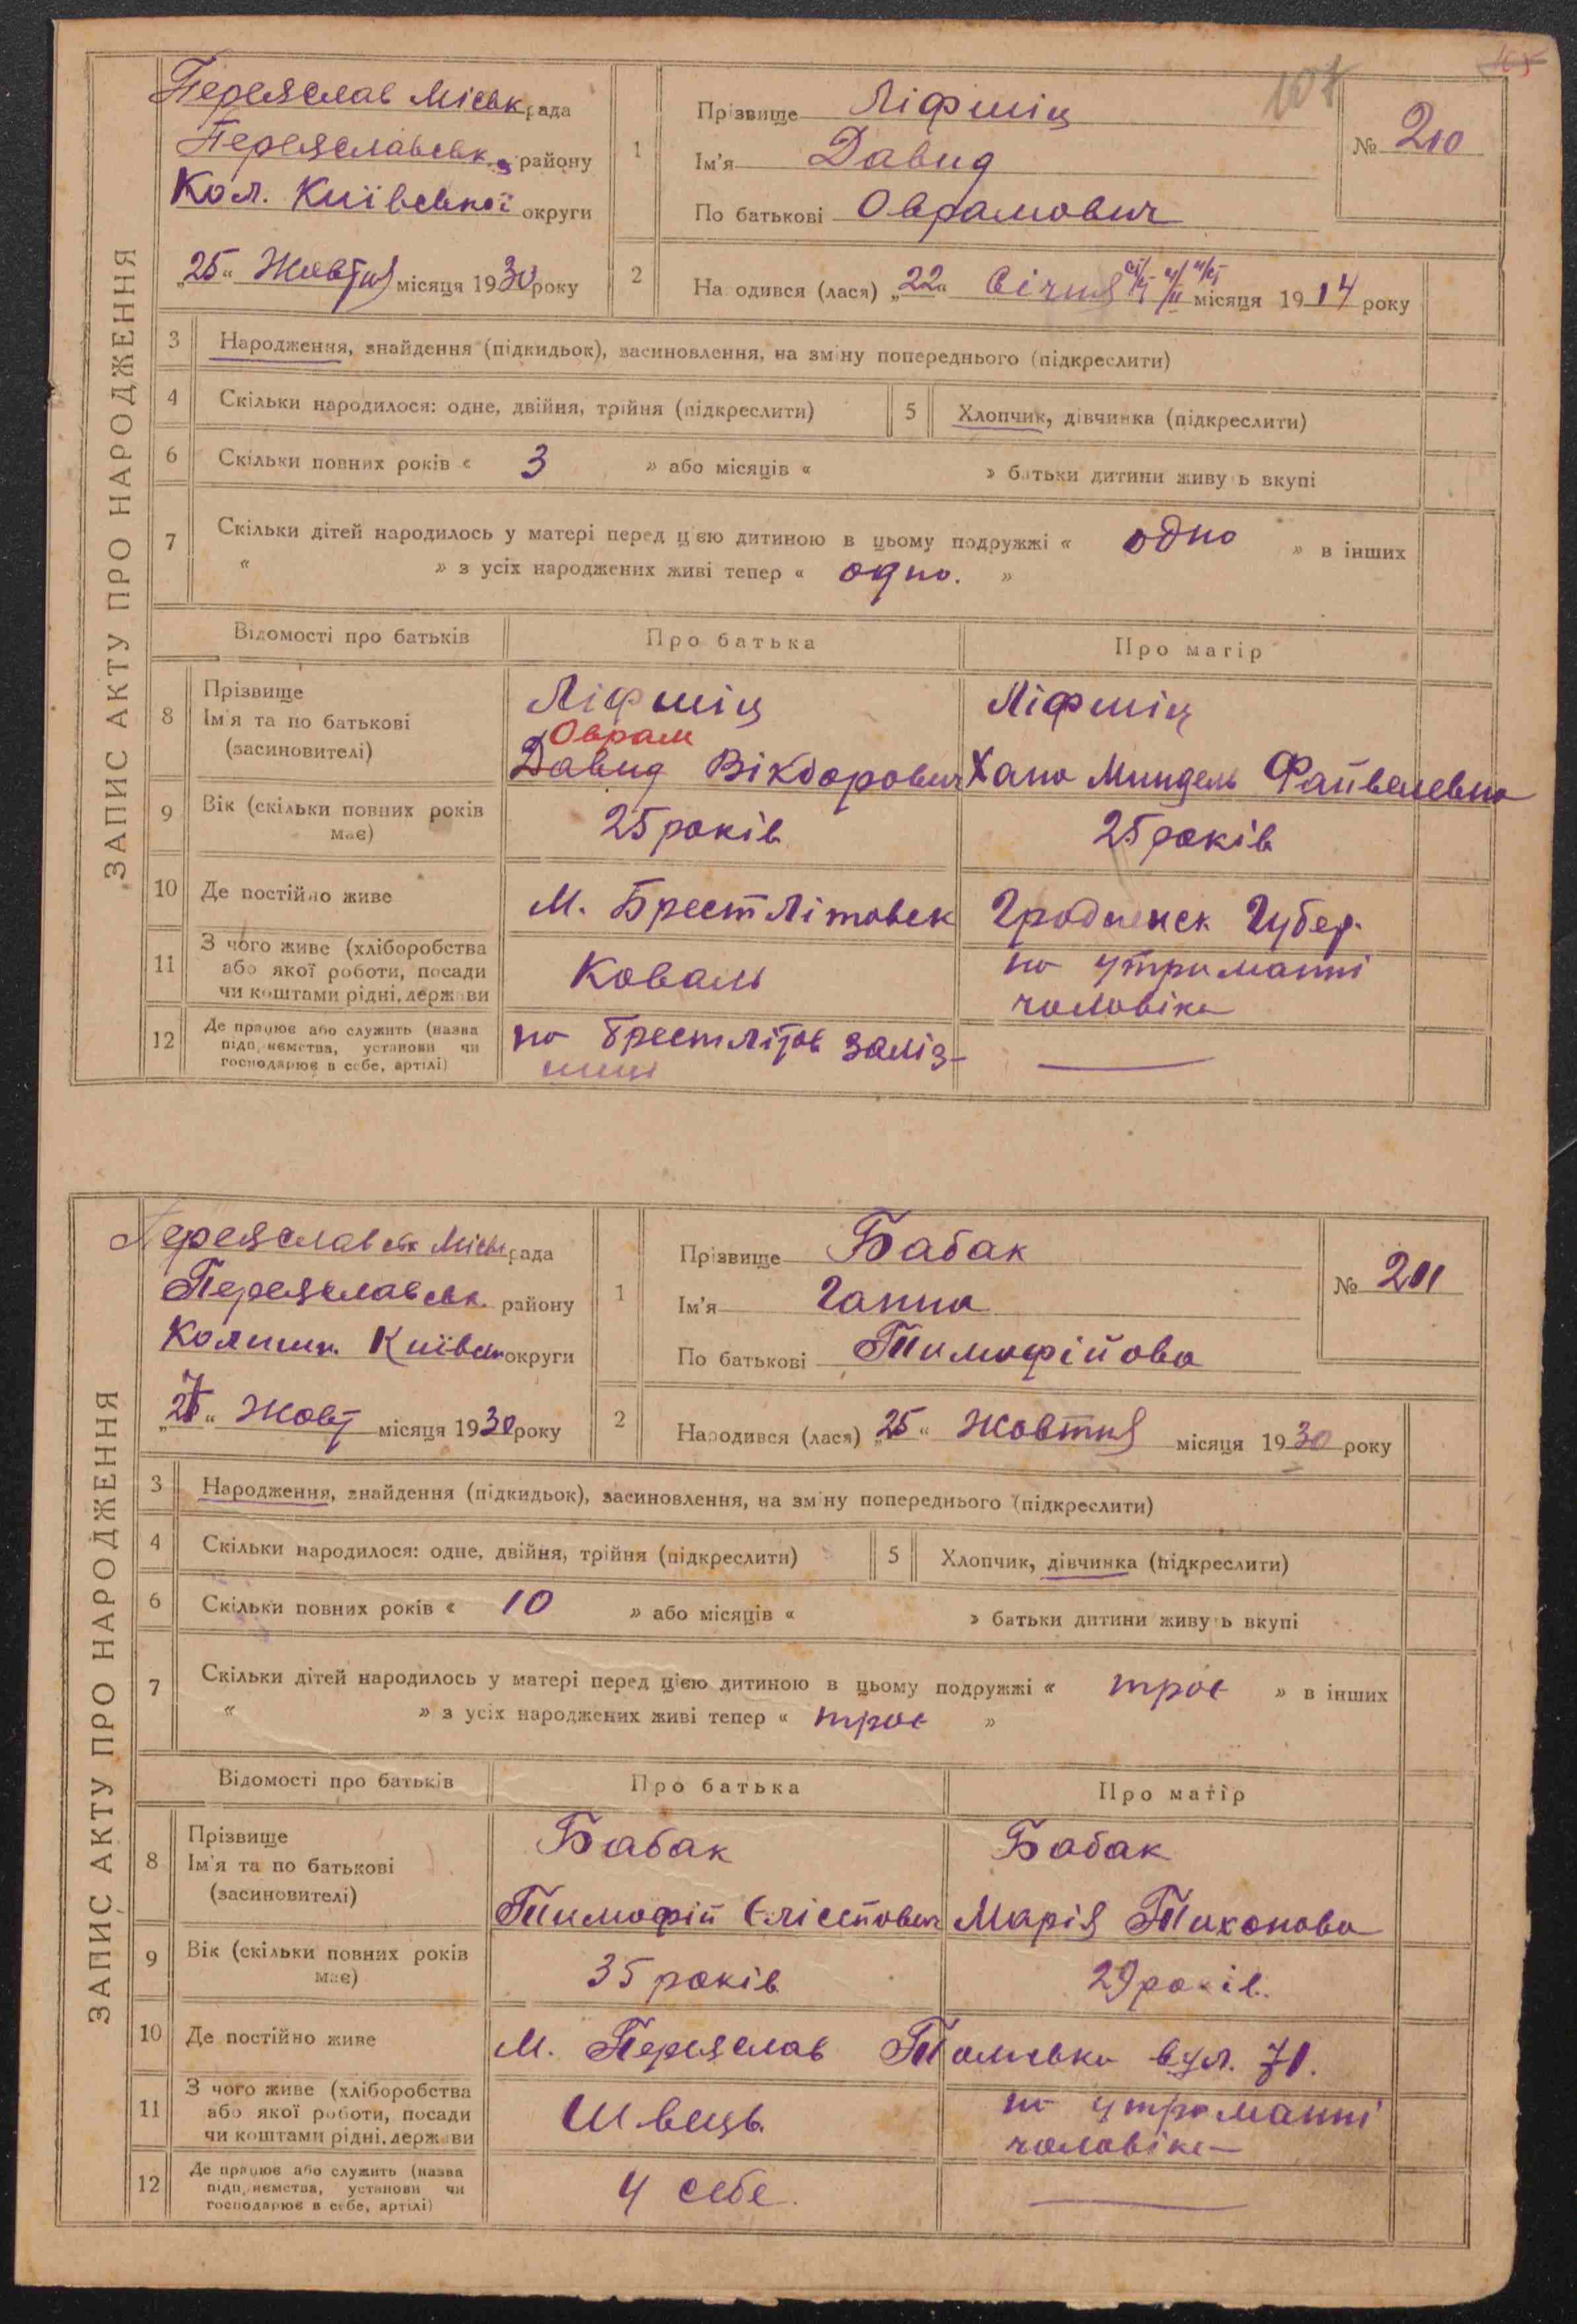 107
ЗАПИС АКТУ ПРО НАРОДЖЕННЯ
Переяслав Міськрада
Переяславськ. району
Кол. Київської округи
„25“ Жовтня місяця 1930 року
1
Прізвище Ліфшіц
Ім'я Давид
По батькові Оврамович
№ 210
2
Народився (лася) „22“ Січня місяця 1914 року
3 Народження, знайдення (підкидьок), засиновлення, на зміну попереднього (підкреслити)
4 Скільки народилося: одне, двійня, трійня (підкреслити)
5 Хлопчик, дівчинка (підкреслити)
6 Скільки повних років « 3 » або місяців « » батьки дитини живуть вкупі
7 Скільки дітей народилось у матері перед цією дитиною в цьому подружжі « одно » в інших
« » з усіх народжених живі тепер « одно. »
Відомості про батьків Про батька Про матір
8 Прізвище
Ім'я та по батькові
(засиновителі)
Ліфшіц
Оврам
Давид Вікторович
Ліфшіц
Хана Миндель Файвелевна
9 Вік (скільки повних років має)
25 років
25 років
10 Де постійно живе
М. Брест Літовск Гродненск Губер.
11 З чого живе (хліборобства
або якої роботи, посади
чи коштами рідні, держави
Коваль
на утриманні
чоловіка
12 Де працює або служить (назва
підприємства, установи чи
господарює в себе, артілі)
на Брест Літов заліз-
ниці
ЗАПИС АКТУ ПРО НАРОДЖЕННЯ
Переяславськ Міськрада
Переяславськ. району
Колишн. Київськ округи
„27“ Жовт місяця 1930 року
1
Прізвище Бабак
Ім'я Ганна
По батькові Тимофійова
№ 211
2
Народився (лася) „25“ Жовтня місяця 1930 року
3 Народження, знайдення (підкидьок), засиновлення, на зміну попереднього (підкреслити)
4 Скільки народилося: одне, двійня, трійня (підкреслити)
5 Хлопчик, дівчинка (підкреслити)
6 Скільки повних років « 10 » або місяців « » батьки дитини живуть вкупі
7 Скільки дітей народилось у матері перед цією дитиною в цьому подружжі « троє » в інших
« » з усіх народжених живі тепер « троє »
Відомості про батьків Про батька Про матір
8 Прізвище
Ім'я та по батькові
(засиновителі)
Бабак
Тимофій
Бабак
Марія Тихонова
9 Вік (скільки повних років має)
35 років
29 років.
10 Де постійно живе
М. Переяслав вул. 71.
11 З чого живе (хліборобства
або якої роботи, посади
чи коштами рідні, держави
Швець.
на утриманні
чоловіка
12 Де працює або служить (назва
підприємства, установи чи
господарює в себе, артілі)
У себе.